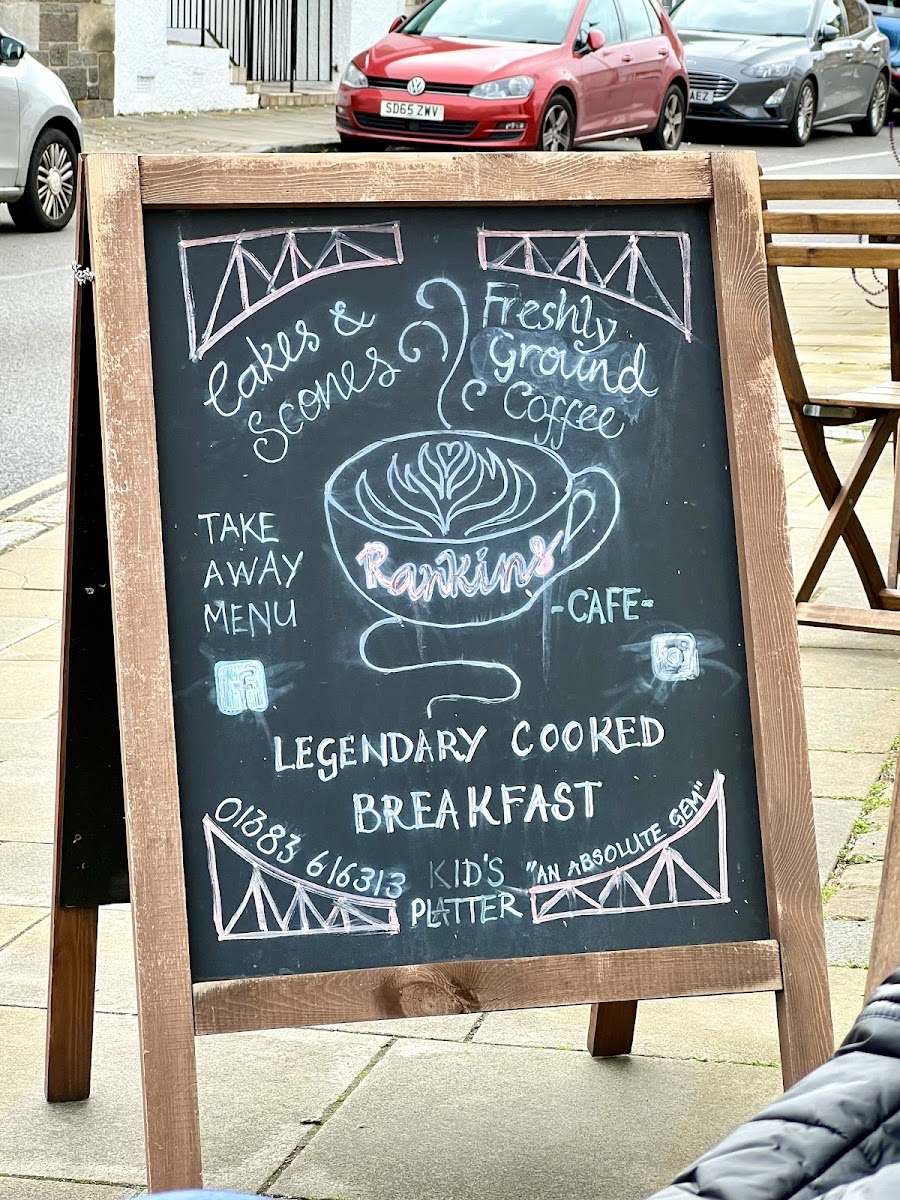 SD65 ZWV
AEZ
Cakes &
Scones
Freshly
Ground
Coffee
TAKE
AWAY
MENU
Rankins
-CAFE-
f
LEGENDARY COOKED
BREAKFAST
01383 616313
KID'S
PLATTER
"AN ABSOLUTE GEM"